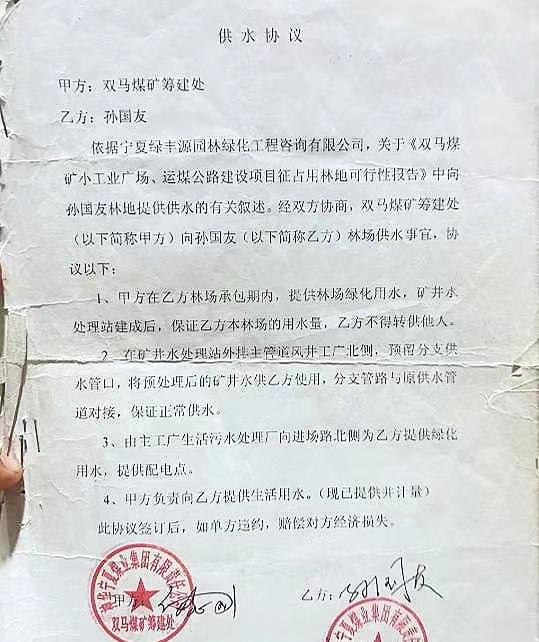 供水协议
甲方：双马煤矿筹建处
乙方：孙国友
依据宁夏绿丰源园林绿化工程咨询有限公司，关于《双马煤
矿小工业广场、运煤公路建设项目征占用林地可行性报告》中向
孙国友林地提供供水的有关叙述。经双方协商，双马煤矿筹建处
（以下简称甲方）向孙国友（以下简称乙方）林场供水事宜，协
议以下：
1、甲方在乙方林场承包期内，提供林场绿化用水，矿井水
处理站建成后，保证乙方本林场的用水量，乙方不得转供他人。
2、在矿井水处理站外排主管道风井工广北侧，预留分支供
水管口，将预处理后的矿井水供乙方使用，分支管路与原供水管
道对接，保证正常供水。
3、由主工广生活污水处理厂向进场路北侧为乙方提供绿化
用水，提供配电点。
4、甲方负责向乙方提供生活用水。（现已提供并计量）
此协议签订后，如单方违约，赔偿对方经济损失。
甲方：
乙方：孙国友
宁夏煤业集团有限责任
双马煤矿筹建处
宁夏煤业集团有限